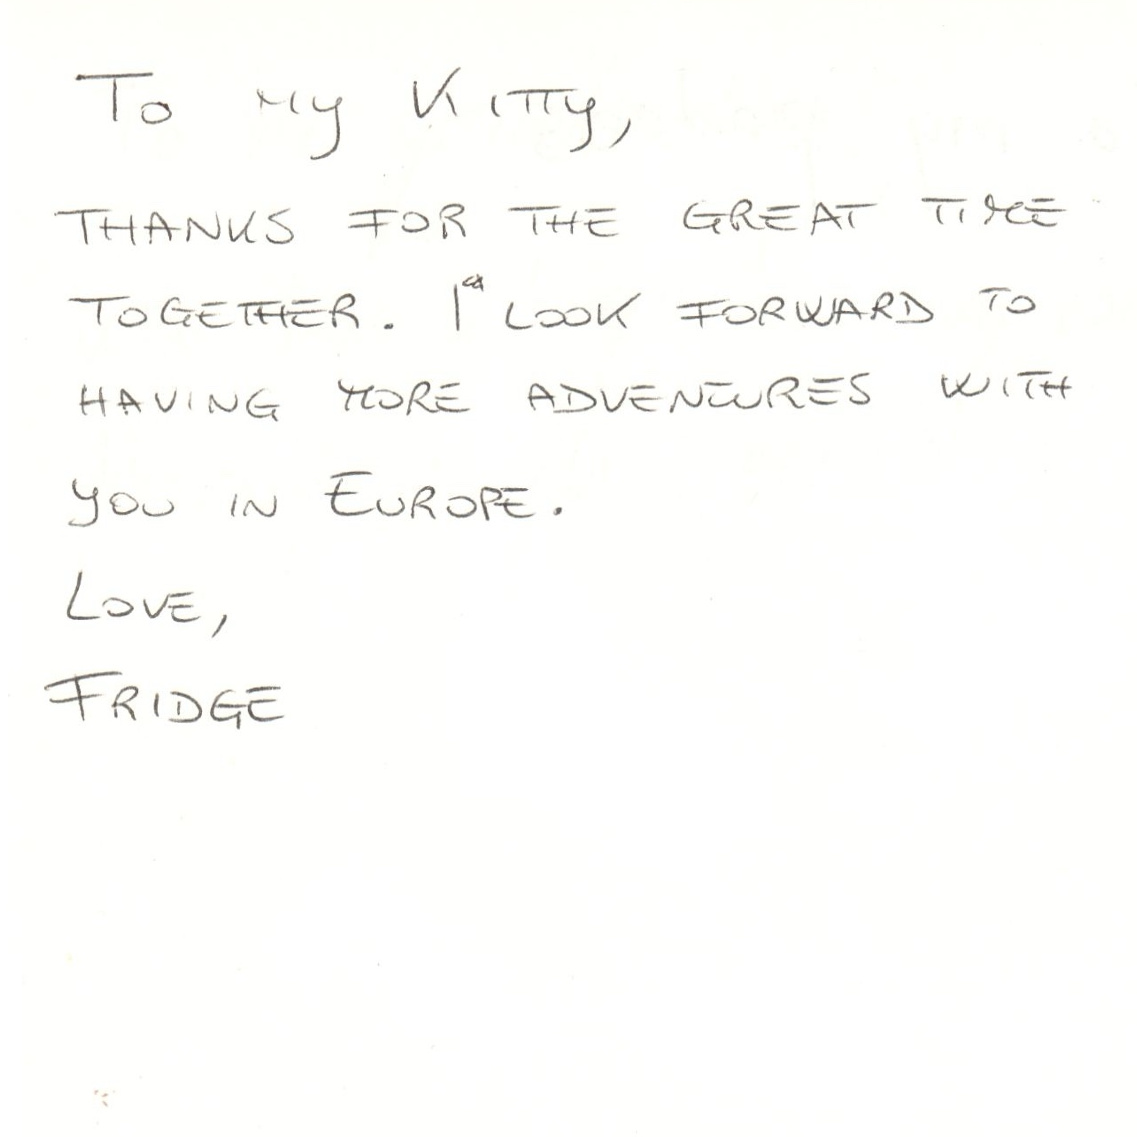 To my Kitty,
THANKS FOR THE GREAT TIME
TOGETHER. I LOOK FORWARD TO
HAVING MORE ADVENTURES WITH
YOU IN EUROPE.
LOVE,
FRIDGE